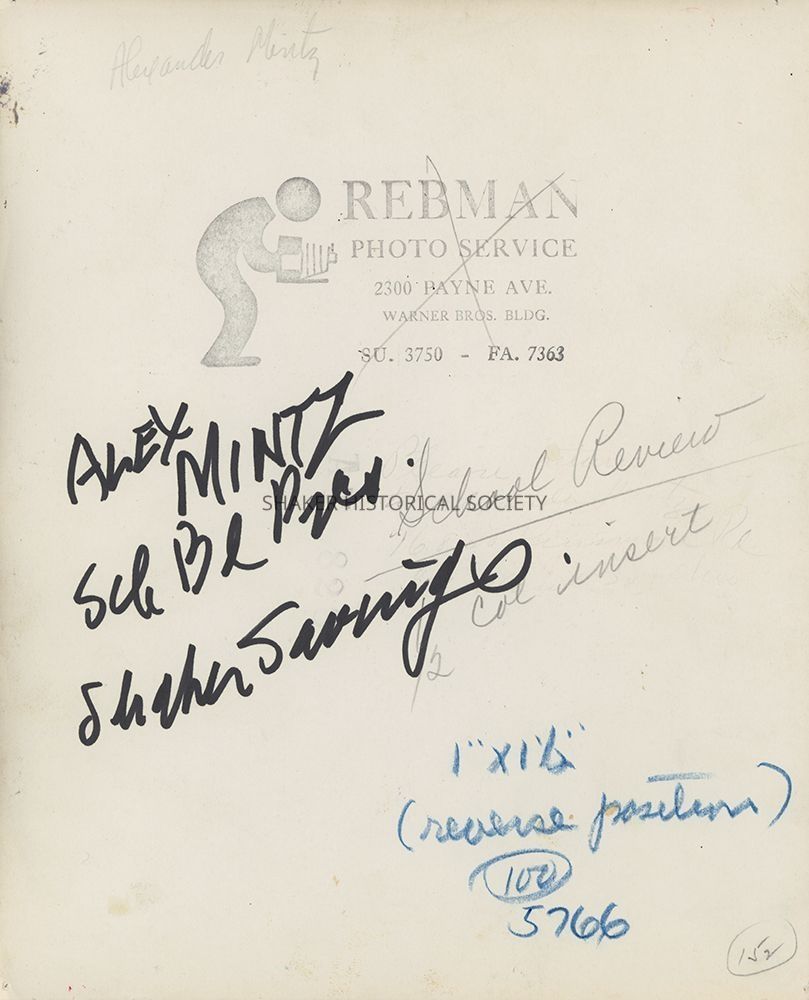 Alexander Mintz
REBMAN
PHOTO SERVICE
2300 PAYNE AVE.
WARNER BROS. BLDG.
SU. 3750 - FA. 7363
ALEX MINTZ
Sch Bd Pres.
Shaker Savings
School Review
1/2 col insert
SHAKER HISTORICAL SOCIETY
1" x 1 1/2"
(reverse position)
100
5766
152